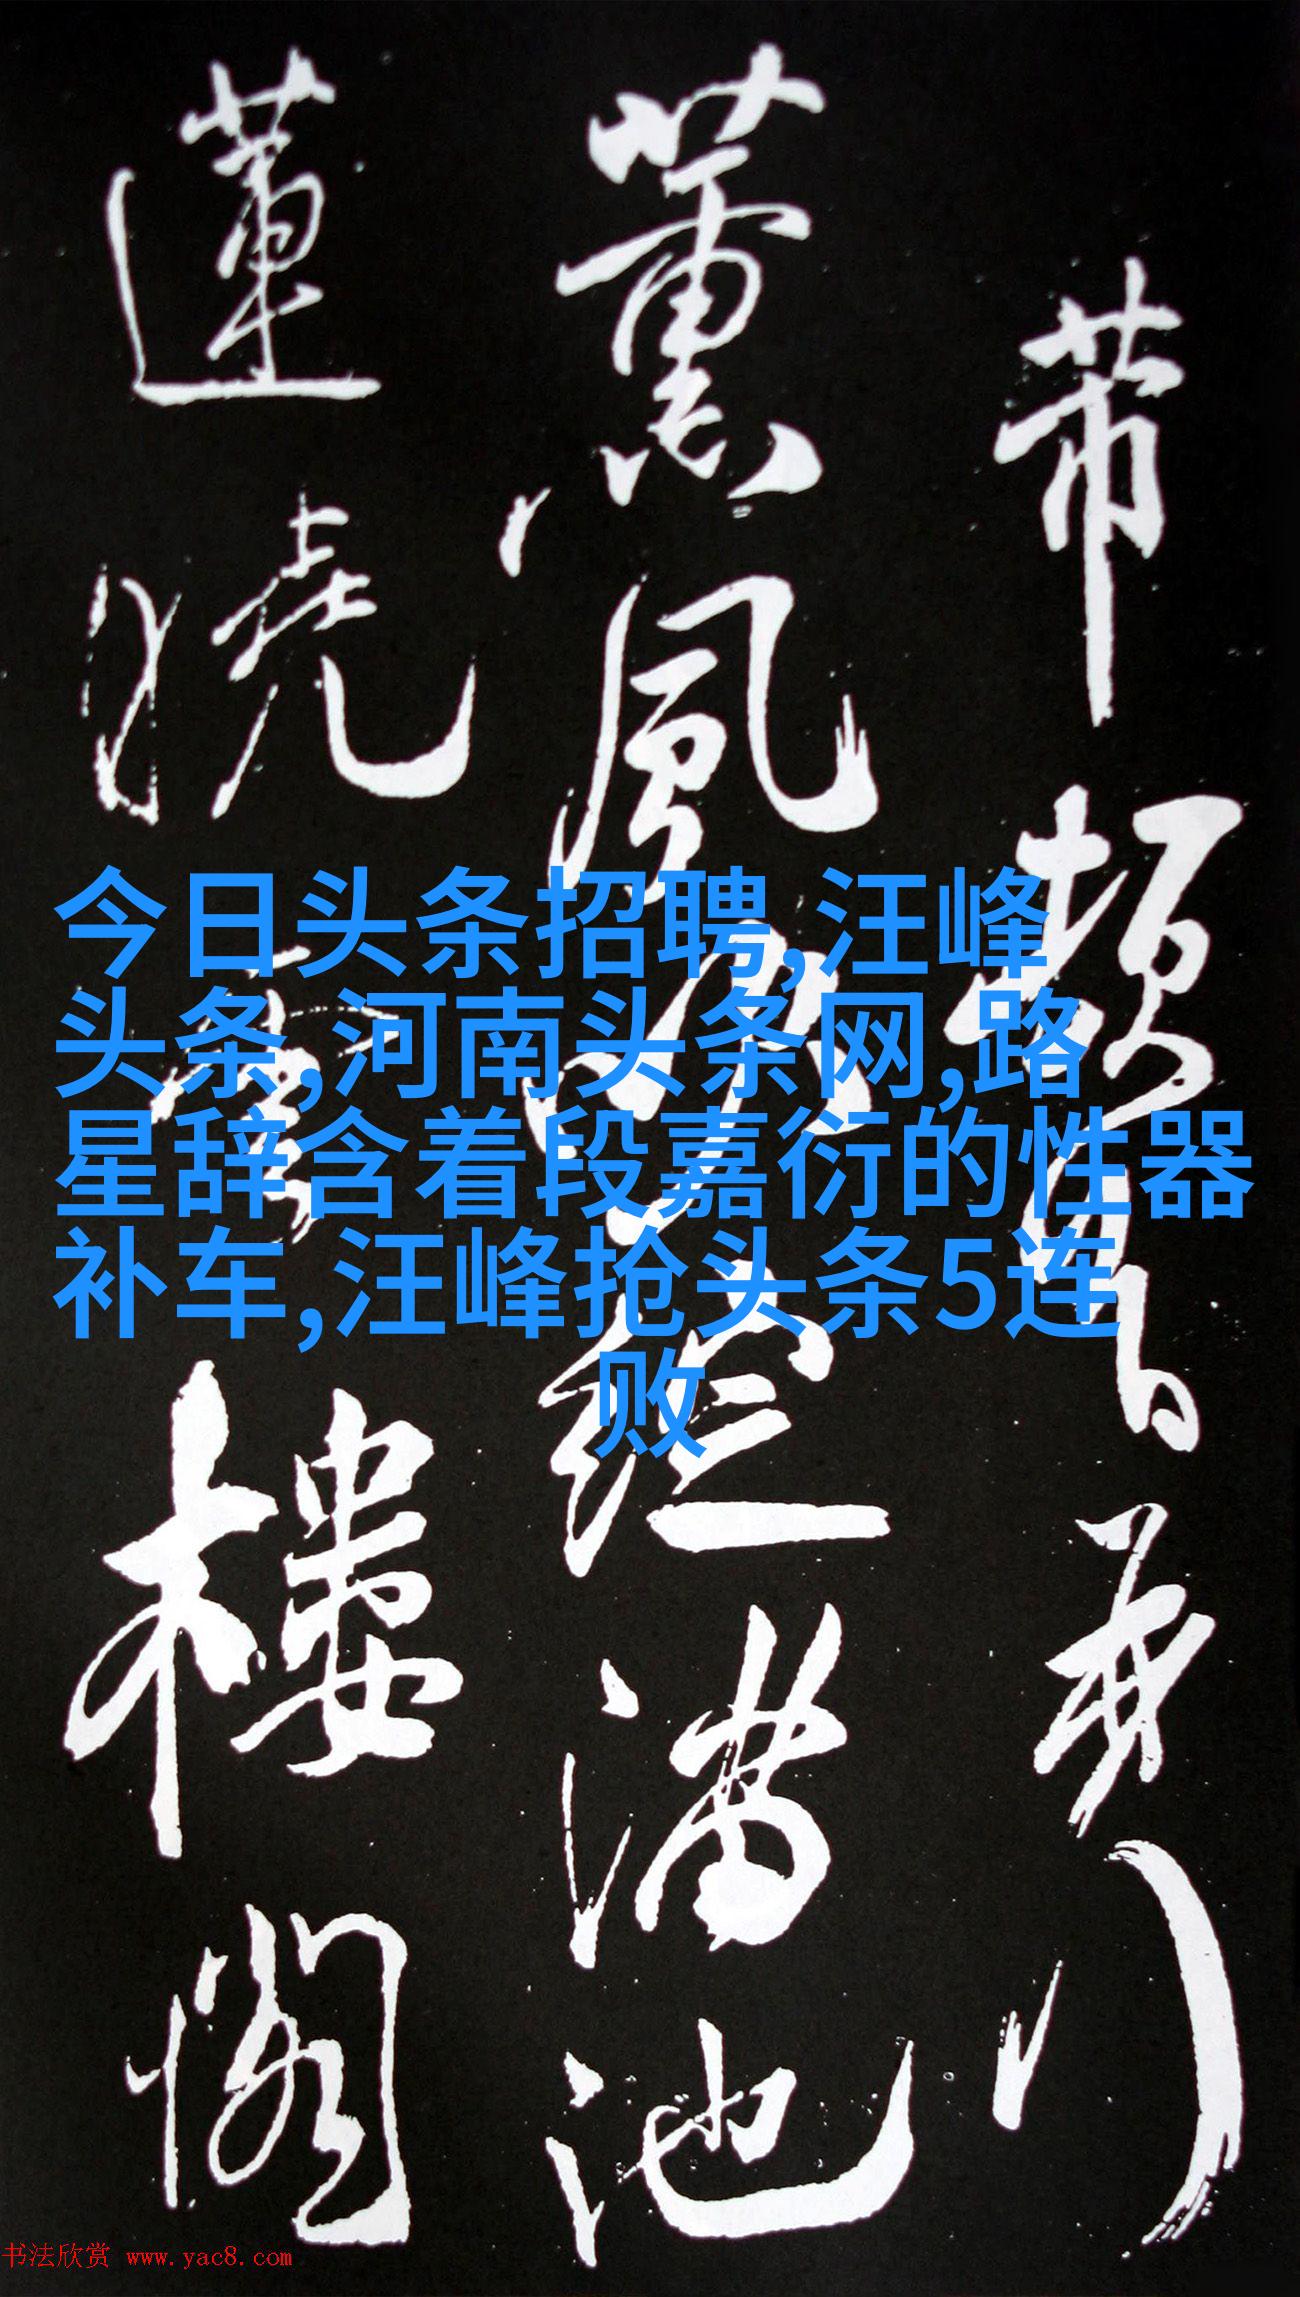 今日头条招聘,汪峰
头条,河南头条网,路
星辞含着段嘉衍的性器
补车,汪峰抢头条5连
败
芾
薰風滿池
蓮樓閣
书法欣赏 www.yac8.com